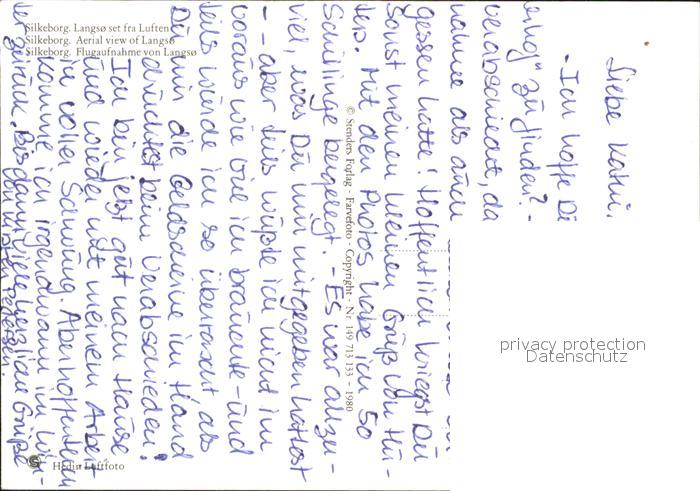 Silkeborg. Langsø set fra Luften
Silkeborg. Aerial view of Langsø
Silkeborg. Flugaufnahme von Langsø
Liebe Kathi.
- Ich hoffe Di
ring" zu finden? -
verabschiedet, da
nahme als auch
gessen hatte! Hoffentlich kriegst Du
sonst meinen kleinen Gruß von Hü-
ters. Mit den Photos habe ich 50
Schillinge beigelegt. - Es war allzu-
viel, was Du mir mitgegeben hattest
- aber teils wußte ich nicht im
voraus wie viel ich brauchte - und
teils wurde ich so überrascht, als
Du mir die Geldscheine im Hand
drücktest beim Verabschieden!
Ich bin jetzt gut nach Hause
und wieder mit meinem Arbeit
in voller Schwung. Aber hoffentlich
komme ich irgendwann im
zurück. Bis dann viele herzliche Grüße
von Kirsten Pedersen.
© Stenders Forlag - Farvefoto - Copyright - Nr. 149 713 133 - 1980
privacy protection
Datenschutz
Hedin Luftfoto